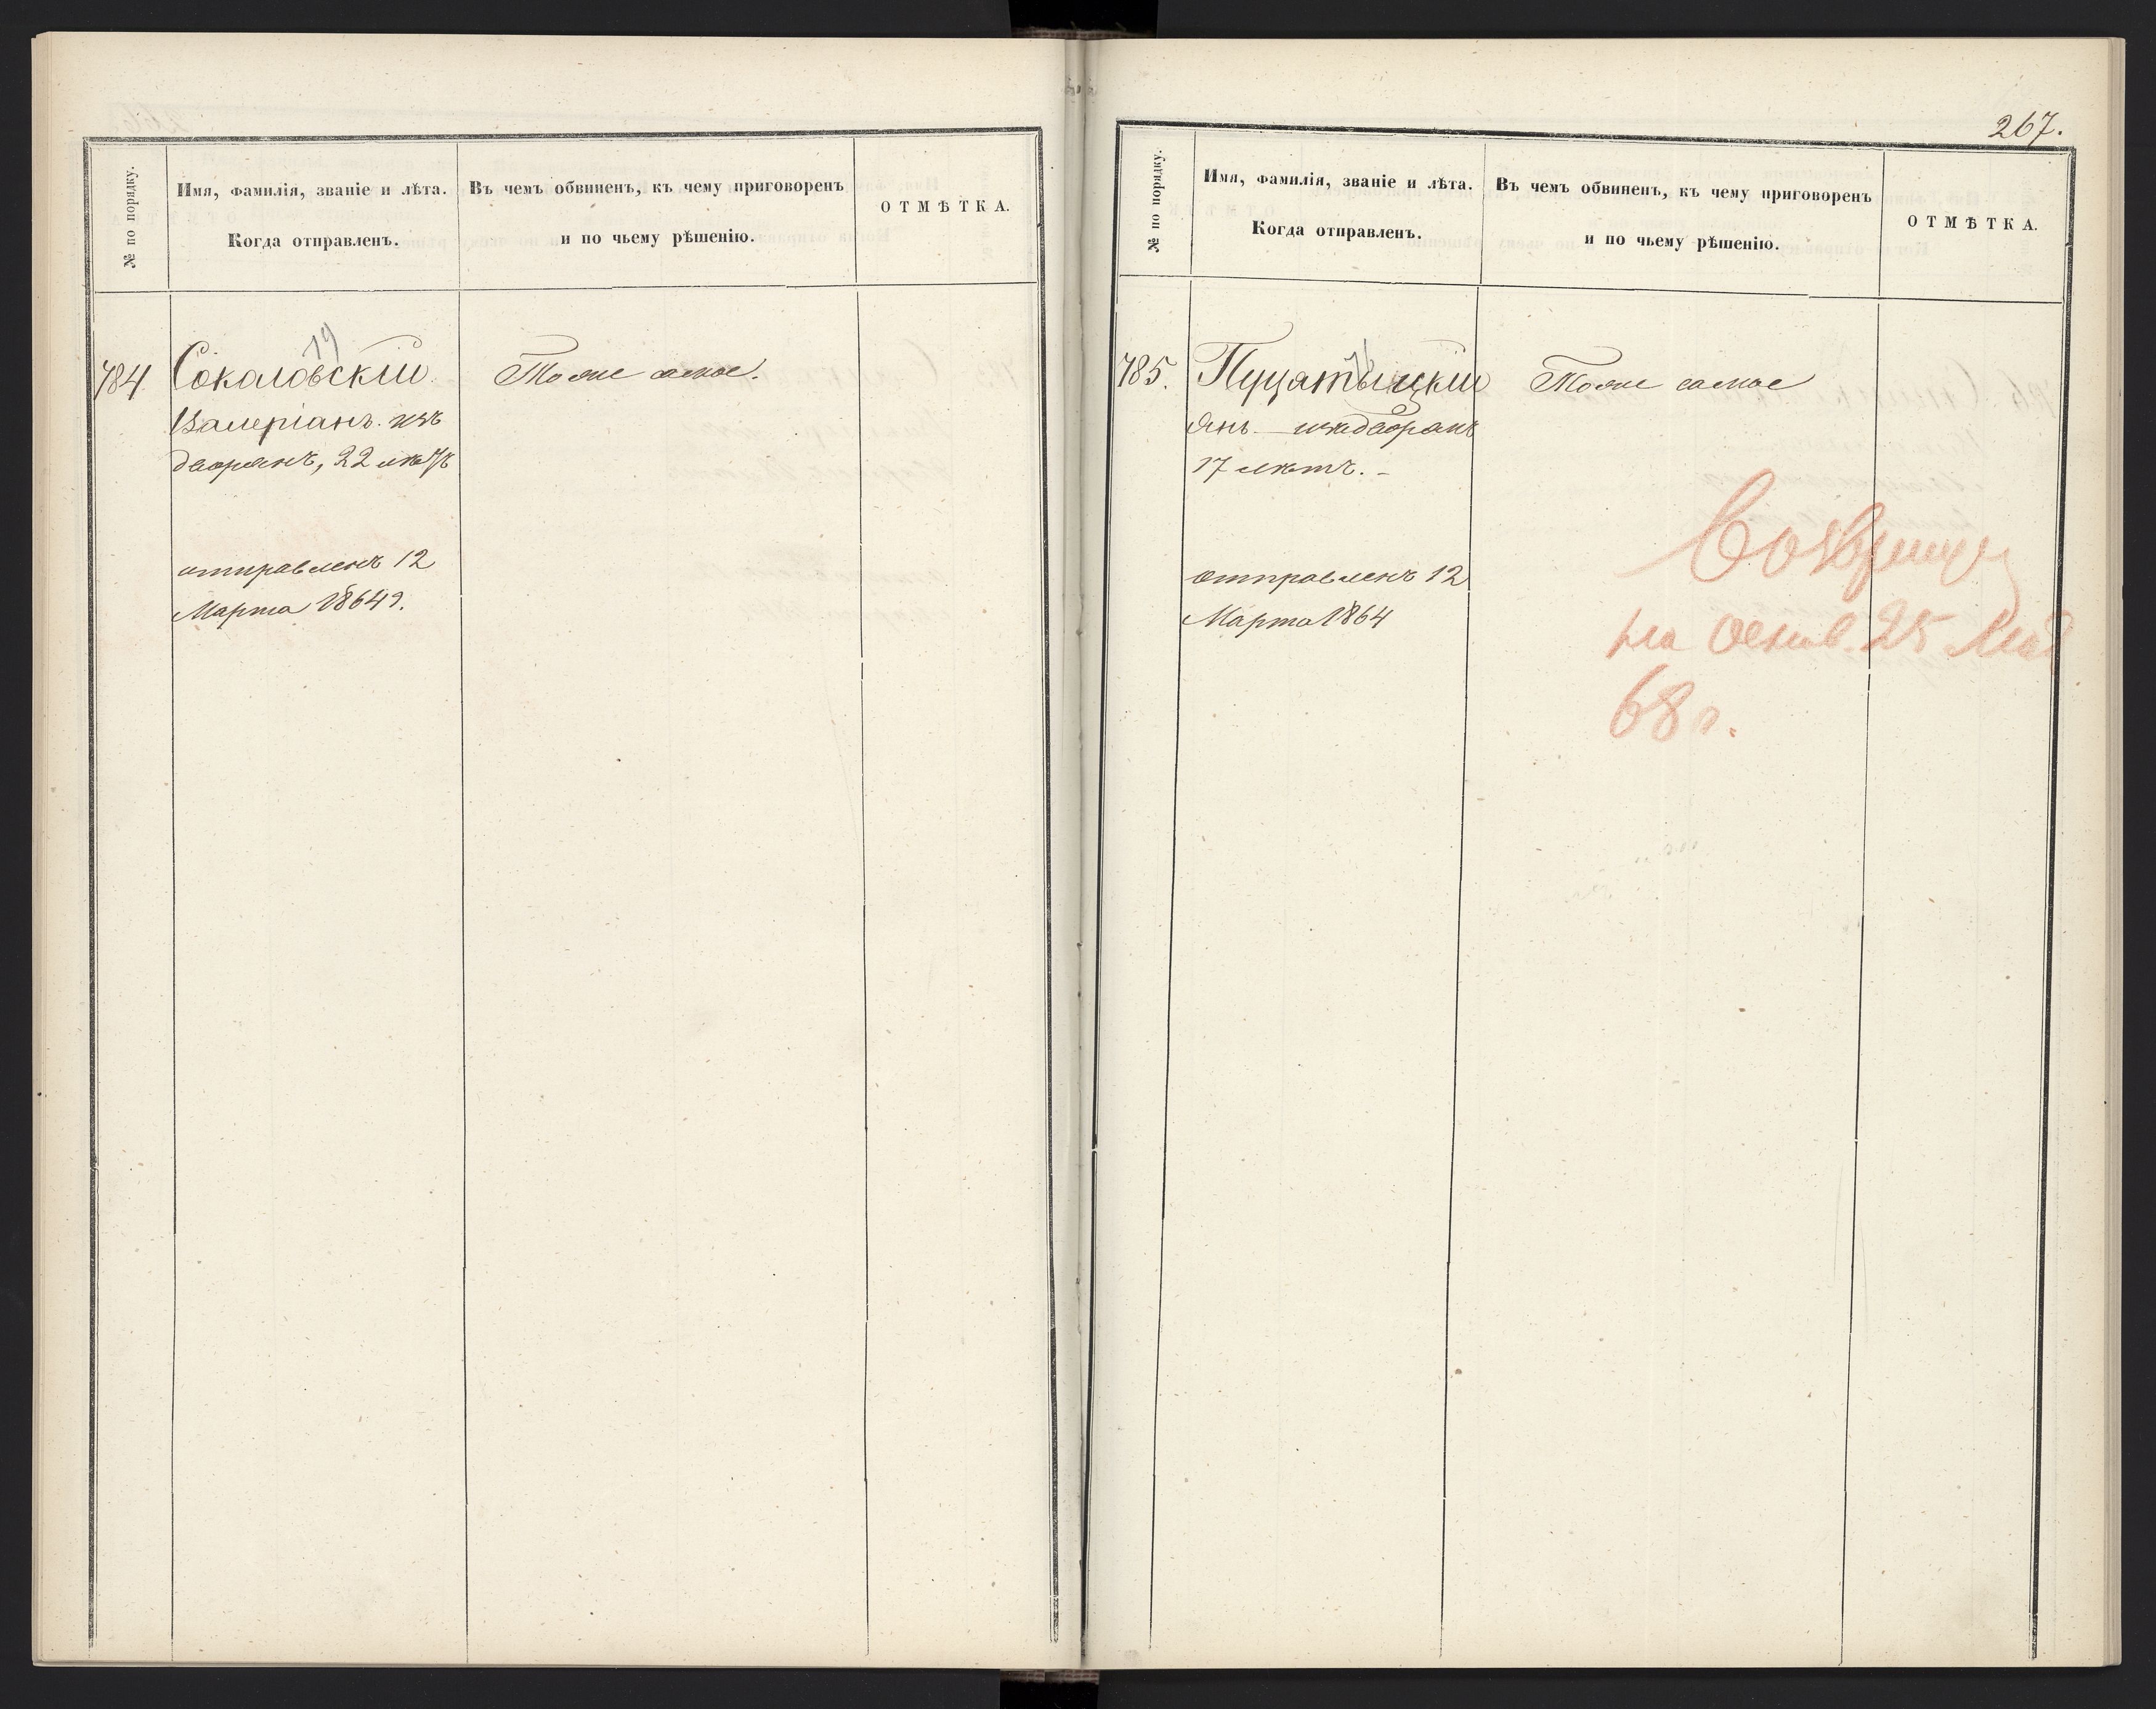 № по порядку.
Имя, фамилія, званіе и лѣта.
Когда отправленъ.
Въ чемъ обвиненъ, къ чему приговоренъ
и по чьему рѣшенію.
ОТМѢТКА.
19
784. Сокаловскій Тоже самое.
Валеріанъ. изъ
дворянъ, 22 лѣтъ
отправленъ 12
Марта 1864 г.
267.
№ по порядку.
Имя, фамилія, званіе и лѣта.
Когда отправленъ.
Въ чемъ обвиненъ, къ чему приговоренъ
и по чьему рѣшенію.
ОТМѢТКА.
785. Пуцатыцкій Тоже самое
Янъ изъ дворянъ
17 лѣтъ. -
отправленъ 12
Марта 1864
на основ. 25 Мая
68 г.